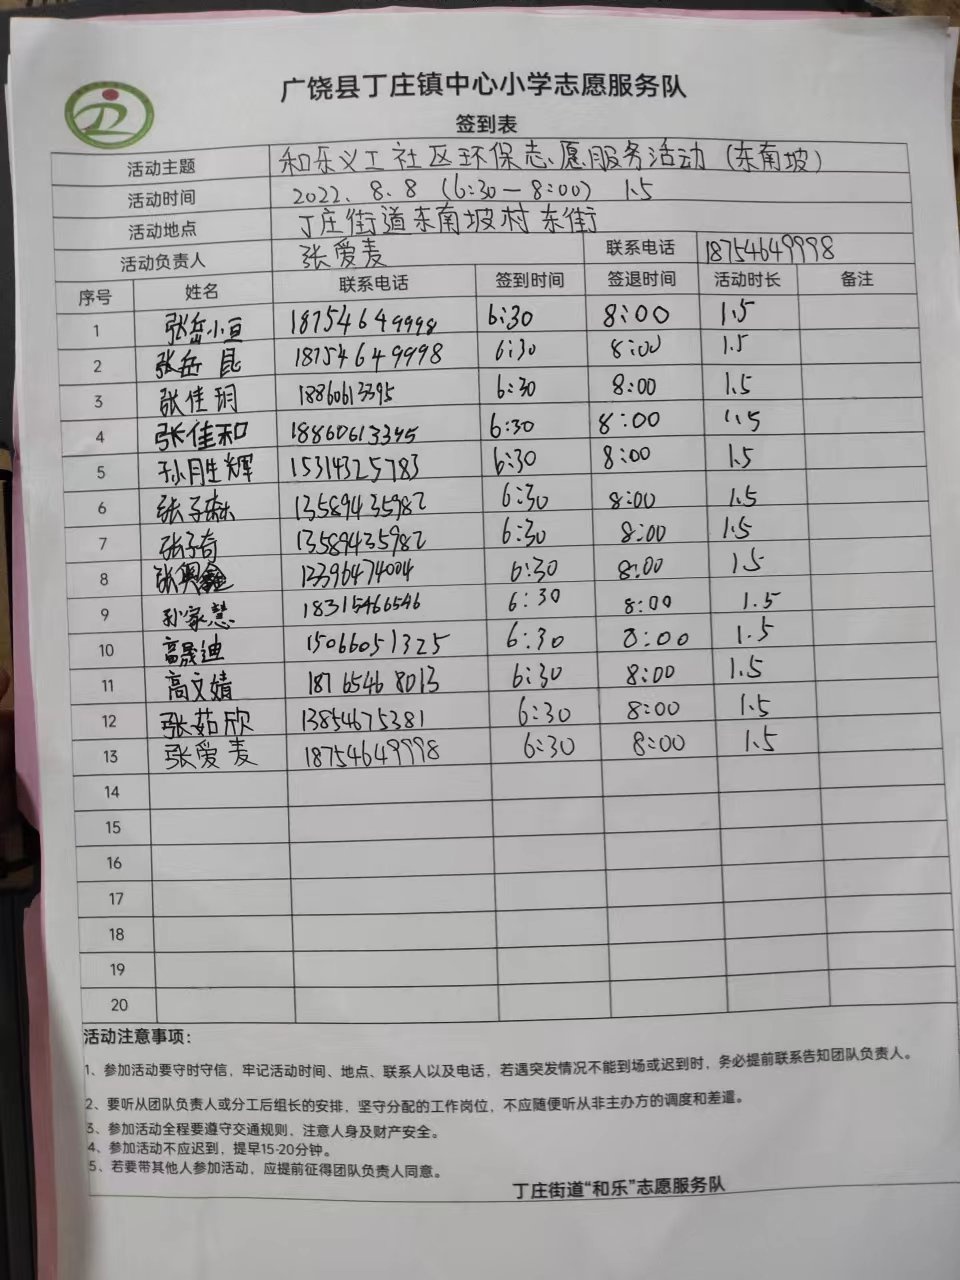 广饶县丁庄镇中心小学志愿服务队
签到表
活动主题 和乐义工社区环保志愿服务活动（东南坡）
活动时间 2022.8.8（6:30－8:00） 1.5
活动地点 丁庄街道东南坡村东街
活动负责人 张爱麦 联系电话 18754649998
序号 姓名 联系电话 签到时间 签退时间 活动时长 备注
1 张岳小豆 18754649998 6:30 8:00 1.5
2 张岳昆 18754649998 6:30 8:00 1.5
3 张佳玥 18860613395 6:30 8:00 1.5
4 张佳和 18860613395 6:30 8:00 1.5
5 孙胜辉 15314325783 6:30 8:00 1.5
6 张子森 13589435982 6:30 8:00 1.5
7 张子奇 13589435982 6:30 8:00 1.5
8 张 13396474004 6:30 8:00 1.5
9 孙家慧 18315466546 6:30 8:00 1.5
10 高晟迪 15066051325 6:30 8:00 1.5
11 高文婧 18765468013 6:30 8:00 1.5
12 张茹欣 13854675381 6:30 8:00 1.5
13 张爱麦 18754649998 6:30 8:00 1.5
14
15
16
17
18
19
20
活动注意事项：
1、参加活动要守时守信，牢记活动时间、地点、联系人以及电话，若遇突发情况不能到场或迟到时，务必提前联系告知团队负责人。
2、要听从团队负责人或分工后组长的安排，坚守分配的工作岗位，不应随便听从非主办方的调度和差遣。
3、参加活动全程要遵守交通规则，注意人身及财产安全。
4、参加活动不应迟到，提早15-20分钟。
5、若要带其他人参加活动，应提前征得团队负责人同意。
丁庄街道“和乐”志愿服务队